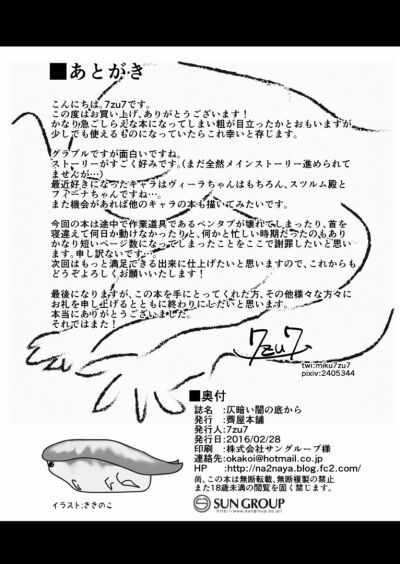 ■あとがき
こんにちは。7zu7です。
この度はお買い上げ、ありがとうございます！
かなり急ごしらえな本になってしまい粗が目立ったかとおもいますが、
少しでも使えるものになっていたらこれ幸いと存じます。
グラブルですが面白いですね。
ストーリーがすごく好みです。（まだ全然メインストーリー進められて
ませんが…）
最近好きになったキャラはヴィーラちゃんはもちろん、スツルム殿と
フィーナちゃんですね…。
また機会があれば他のキャラの本も描いてみたいです。
今回の本は途中で作業道具であるペンタブが壊れてしまったり、首を
寝違えて何日か動けなかったりと、何かと忙しい時期だったのもあり
かなり短いページ数になってしまったことをここで謝罪したいと思い
ます。申し訳ないです…
次回はもっと満足できる出来に仕上げたいと思いますので、これからも
どうぞよろしくお願いいたします！
最後になりますが、この本を手にとってくれた方、その他様々な方々に
お礼を申し上げるとともに終わりにしたいと思います。
本当にありがとうございました。
それではまた！
7zu7
twi:miku7zu7
pixiv:2405344
■奥付
誌名　:仄暗い闇の底から
発行　:薺屋本舗
発行人:7zu7
発行日:2016/02/28
印刷　:株式会社サングループ様
連絡先:okakoi@hotmail.co.jp
HP　:http://na2naya.blog.fc2.com/
尚、この本は無断転載、無断複製の禁止
また18歳未満の閲覧を固く禁じます。
SUN GROUP
http://www.sungroup.co.jp/
イラスト:ささきのこ